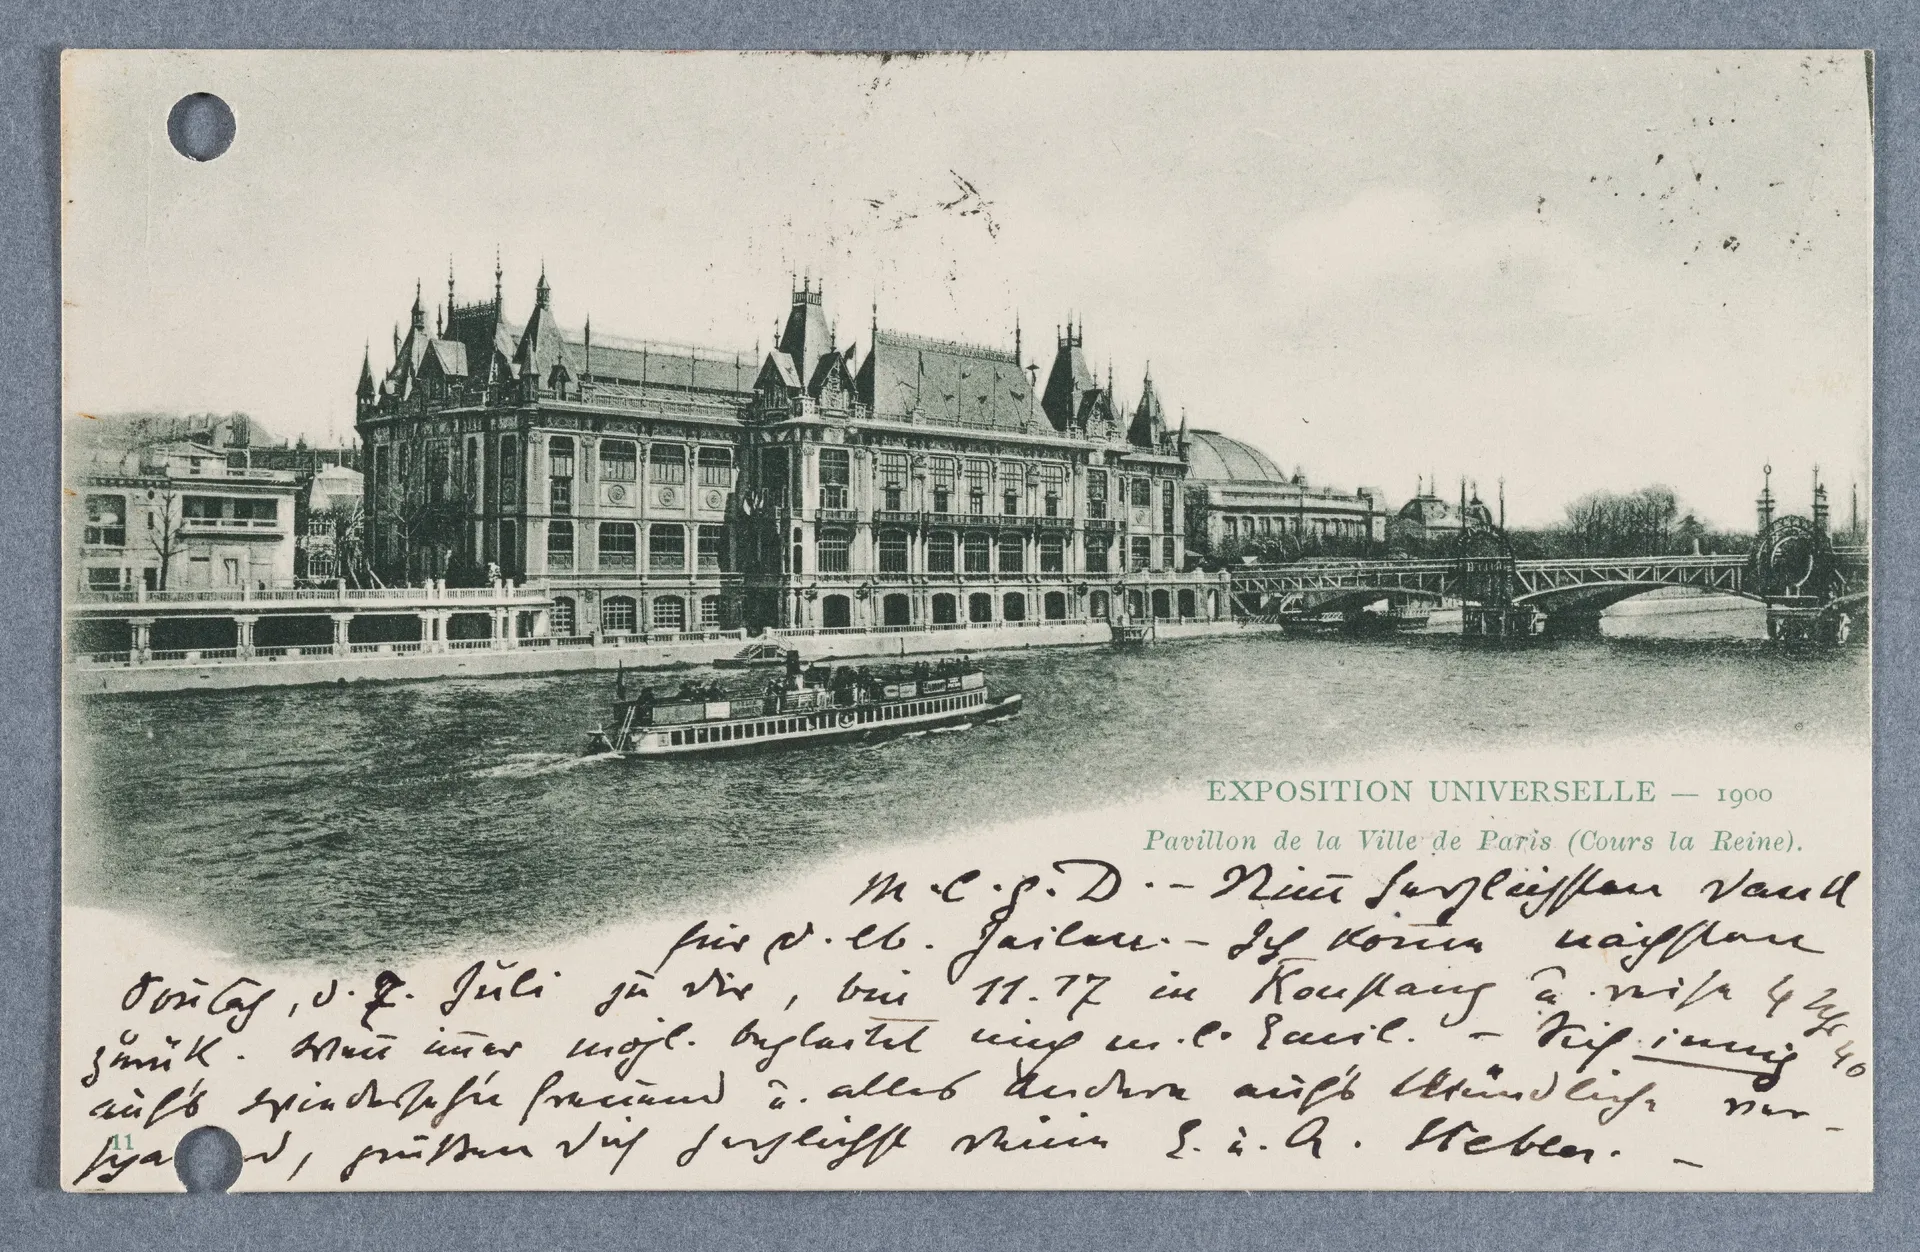 EXPOSITION UNIVERSELLE — 1900
Pavillon de la Ville de Paris (Cours la Reine).
M. l. g. D. – Nim̅ herzlichsten Dank
für d. lb. Zeilen. – Ich kom̅e nächsten
Soñtag, d. 7. Juli zu dir, bin 11.17 in Konstanz u. reise 4 Uhr 40
zurük. Wen̅ im̅er mögl. begleitet mich m. l. Emil. – Dich innig
aufs wiedersehn freuend u. alles Andere aufs Mündliche ver-
d, grüßen dich herzlichst deine E. u. A. Stebler. –
11